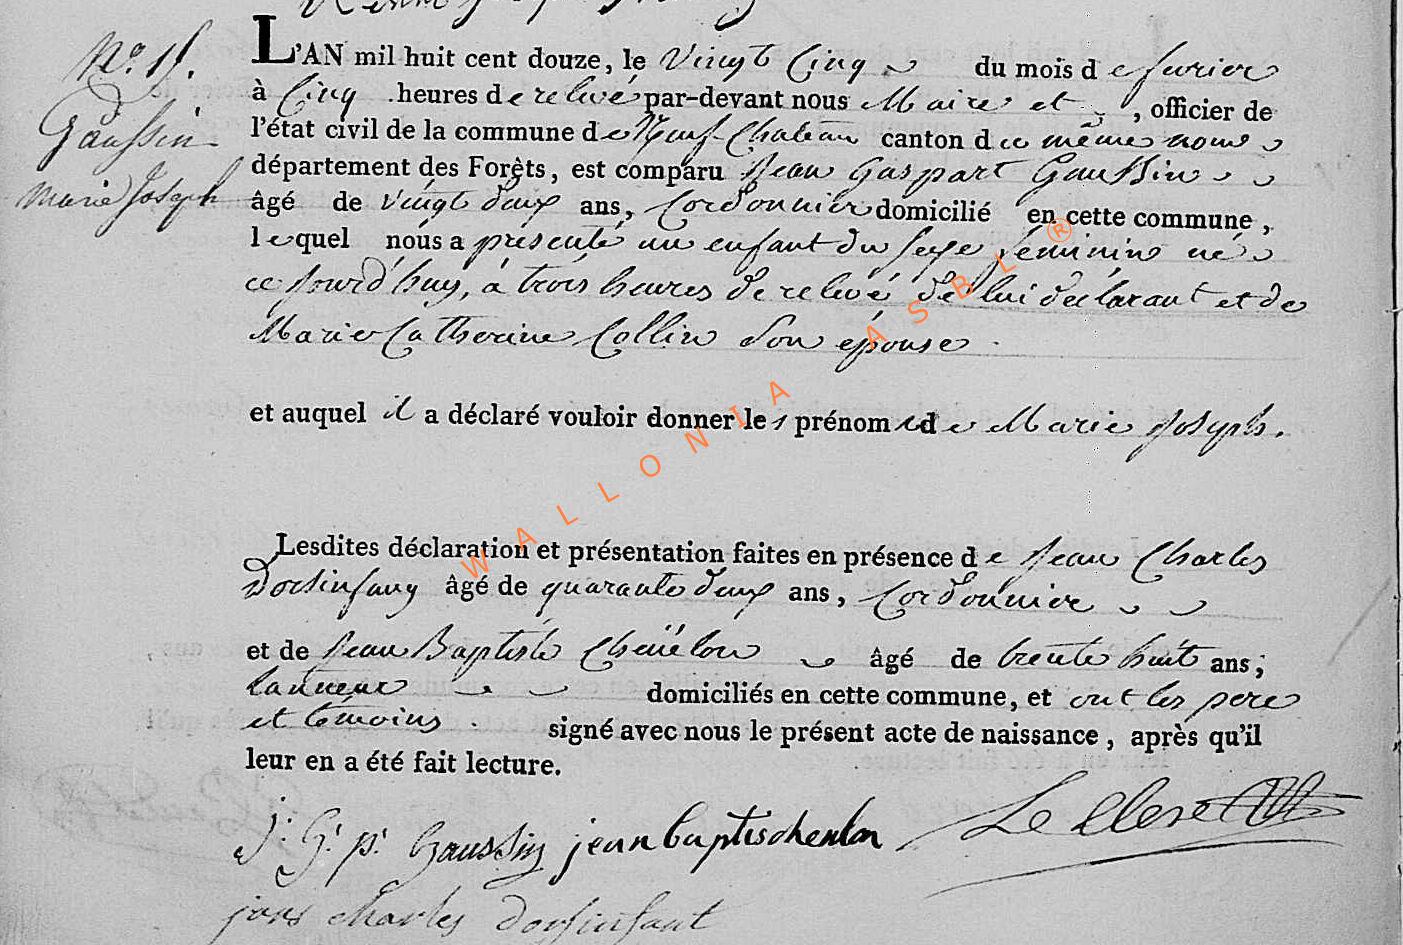 N.º 15.
Gaussin
Marie Joseph
L'AN mil huit cent douze, le Vingt Cinq du mois de fevrier
à Cinq heures de relevé par-devant nous Maire et , officier de
l'état civil de la commune de Neuf-Chateau canton de ce même nom
département des Forêts, est comparu Jean Gaspart Gaussin
âgé de vingt deux ans, Cordonnier domicilié en cette commune,
lequel nous a présenté un enfant du sexe féminin né
ce jourd'huy, à trois heures de relevé de lui déclarant et de
Marie Catherine Collin son épouse.
et auquel il a déclaré vouloir donner les prénoms de Marie Joseph.
Lesdites déclaration et présentation faites en présence de Jean Charles
Dorsinfang âgé de quarante deux ans, Cordonnier
et de Jean Baptiste Chenelon âgé de trente huit ans;
tanneur domiciliés en cette commune, et ont les pere
et témoins. signé avec nous le présent acte de naissance, après qu'il
leur en a été fait lecture.
J: G: p: Gaussin jean baptis chenlon Le Clerc
jans charles dorsinfant
WALLONIA ASBL ®